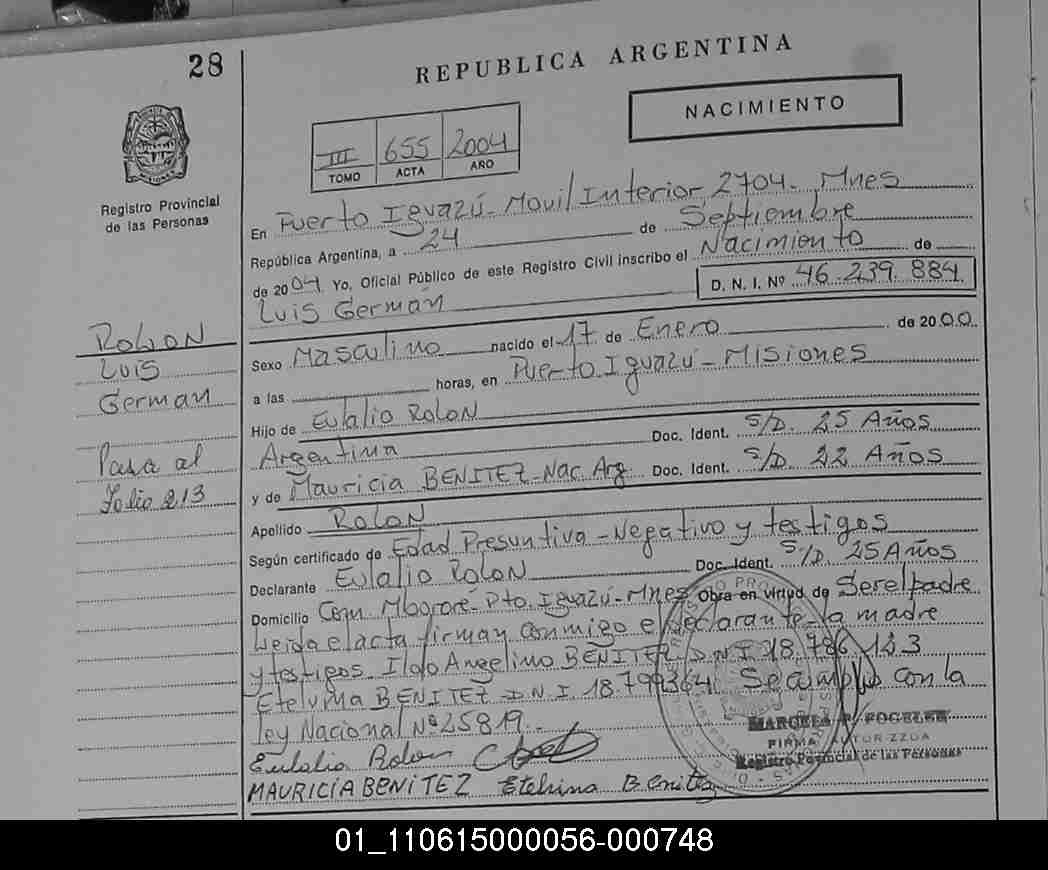 28
REPUBLICA ARGENTINA
NACIMIENTO
III 655 2004
TOMO ACTA AÑO
Registro Provincial
de las Personas
En Puerto Iguazú - Movil Interior 2704 - Mnes
República Argentina, a 24 de Septiembre
de 2004. Yo, Oficial Público de este Registro Civil inscribo el Nacimiento de
Luis German D. N. I. Nº 46.239.884
ROLON
Luis
German
Pasa al
Folio 213
Sexo Masculino nacido el 17 de Enero de 2000
a las horas, en Puerto Iguazú - MISIONES
Hijo de Eulalio ROLON
Argentina Doc. Ident. S/D. 25 Años
y de Mauricia BENITEZ - Nac. Arg. Doc. Ident. S/D. 22 Años
Apellido ROLON
Según certificado de Edad Presuntiva - Negativo y testigos
Declarante Eulalio ROLON Doc. Ident. S/D. 25 Años
Domicilio Com. Mbororé - Pto. Iguazú - Mnes Obra en virtud de Ser el padre
Leida el acta firman conmigo el declarante la madre
y testigos Ildo Angelino BENITEZ D.N.I 18.786.123
Etelvina BENITEZ D.N.I. 18.799364 Se cumplio con la
ley Nacional Nº 25819.
Eulalio Rolon
MAURICIA BENITEZ Etelvina Benitez
MARCELA P. FOGELER
FIRMA AUTORIZZDA
Registro Provincial de las Personas
01_110615000056-000748